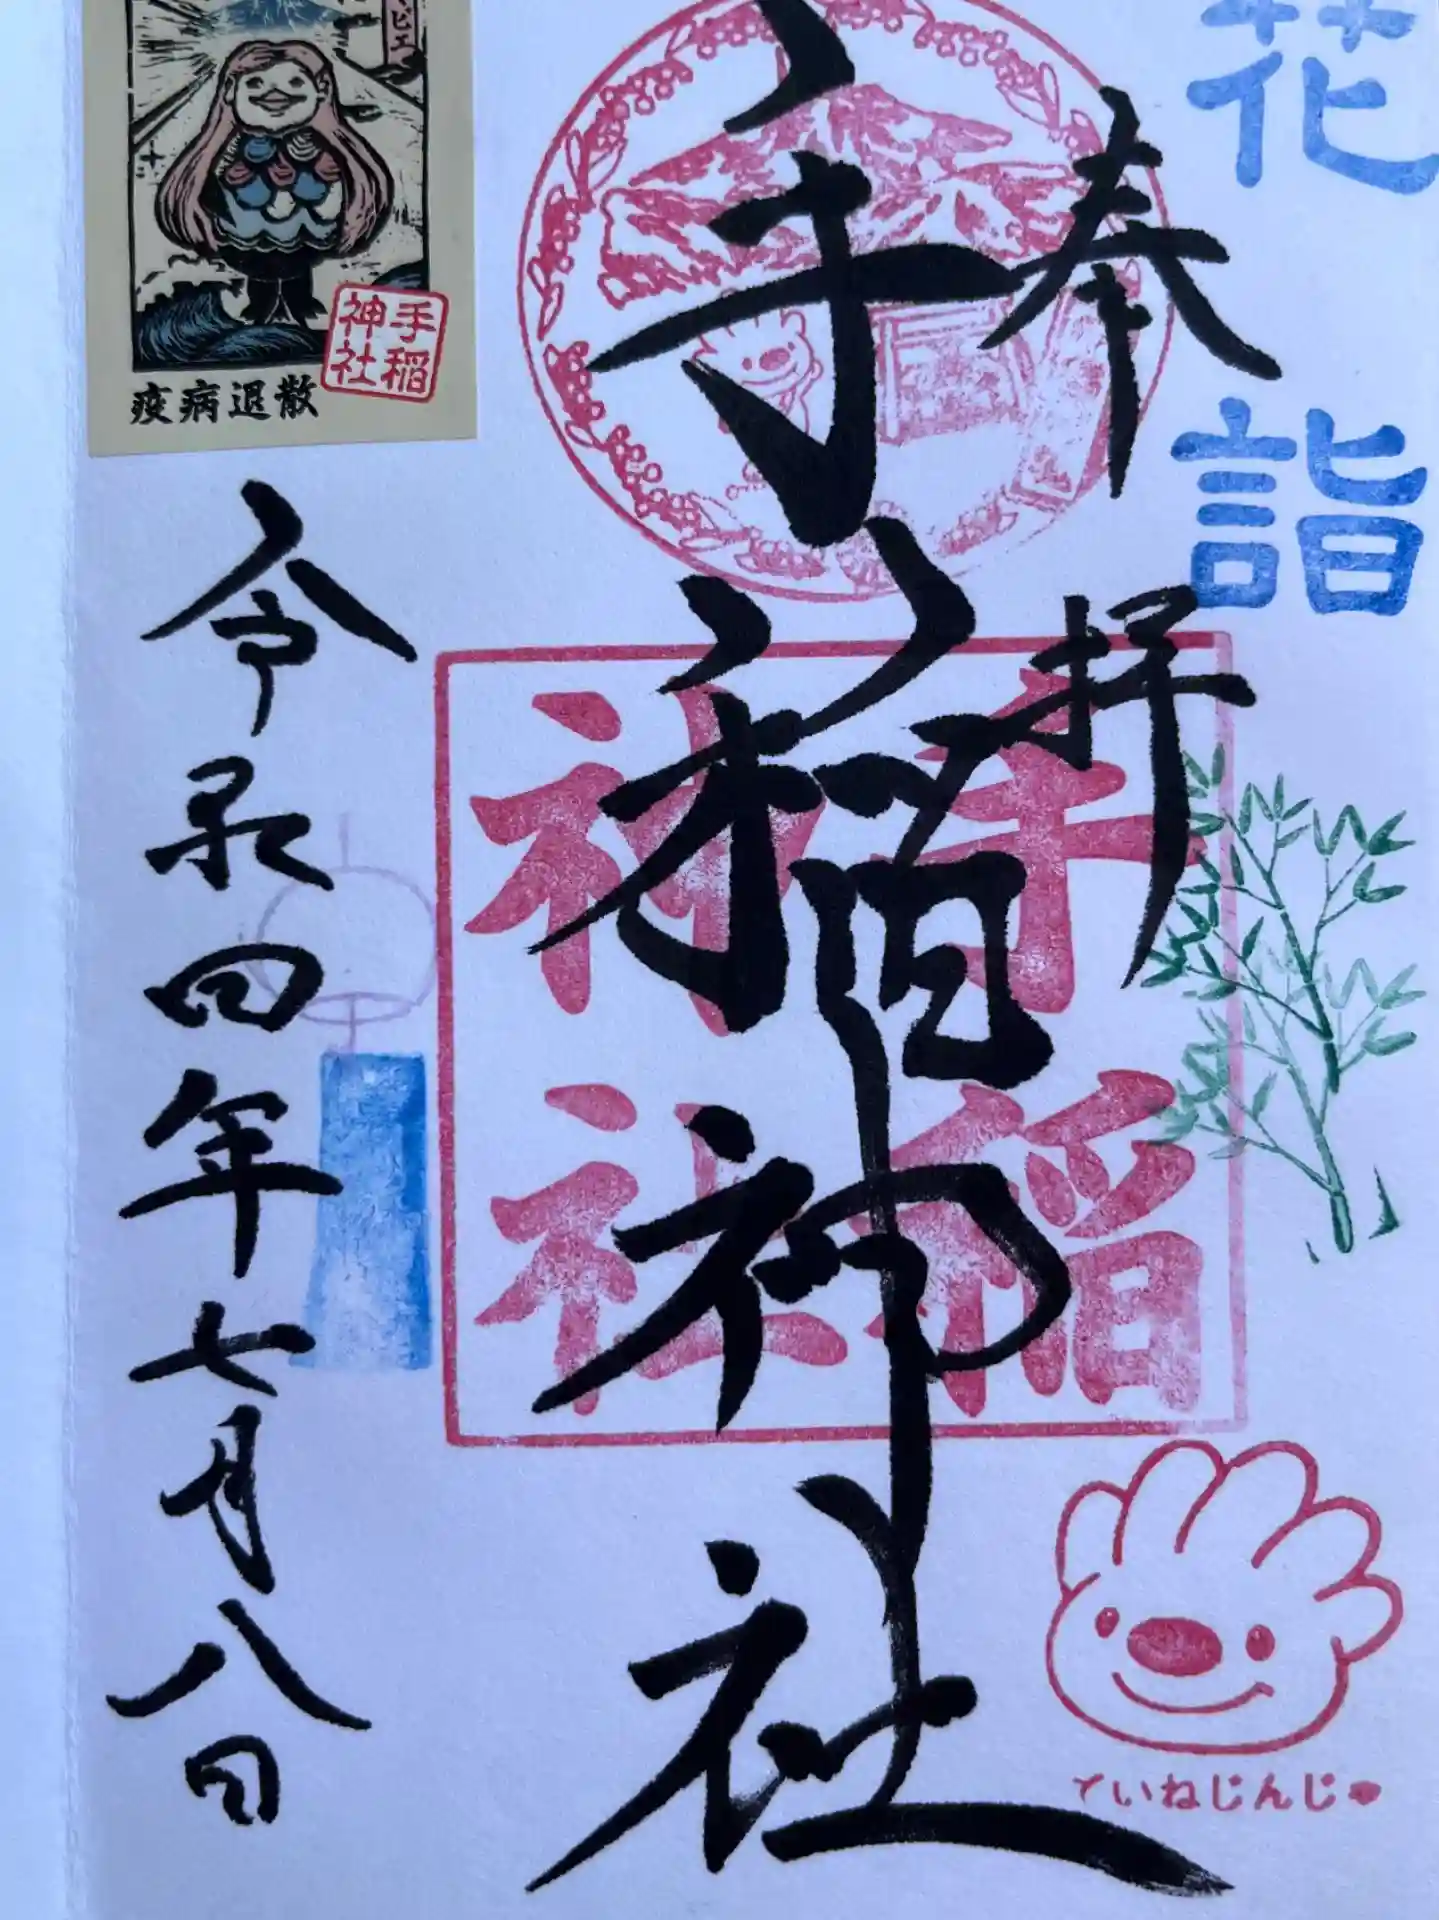 花詣
奉拝
手稲神社
手稲
神社
ていねじんじゃ
令和四年七月八日
ビエ
手稲
神社
疫病退散